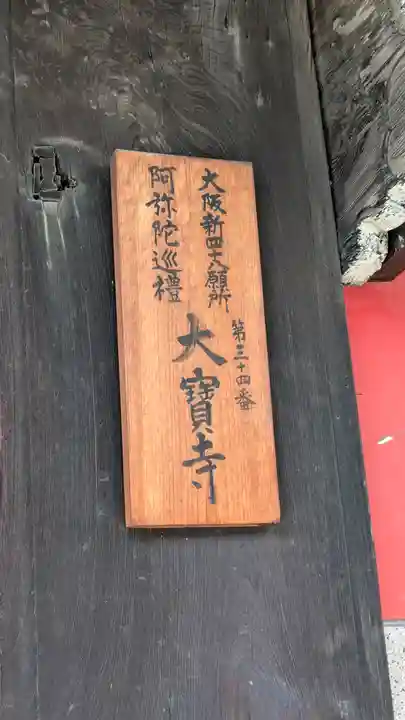 大阪新四十八願所
第三十四番
阿弥陀巡禮
大寶寺